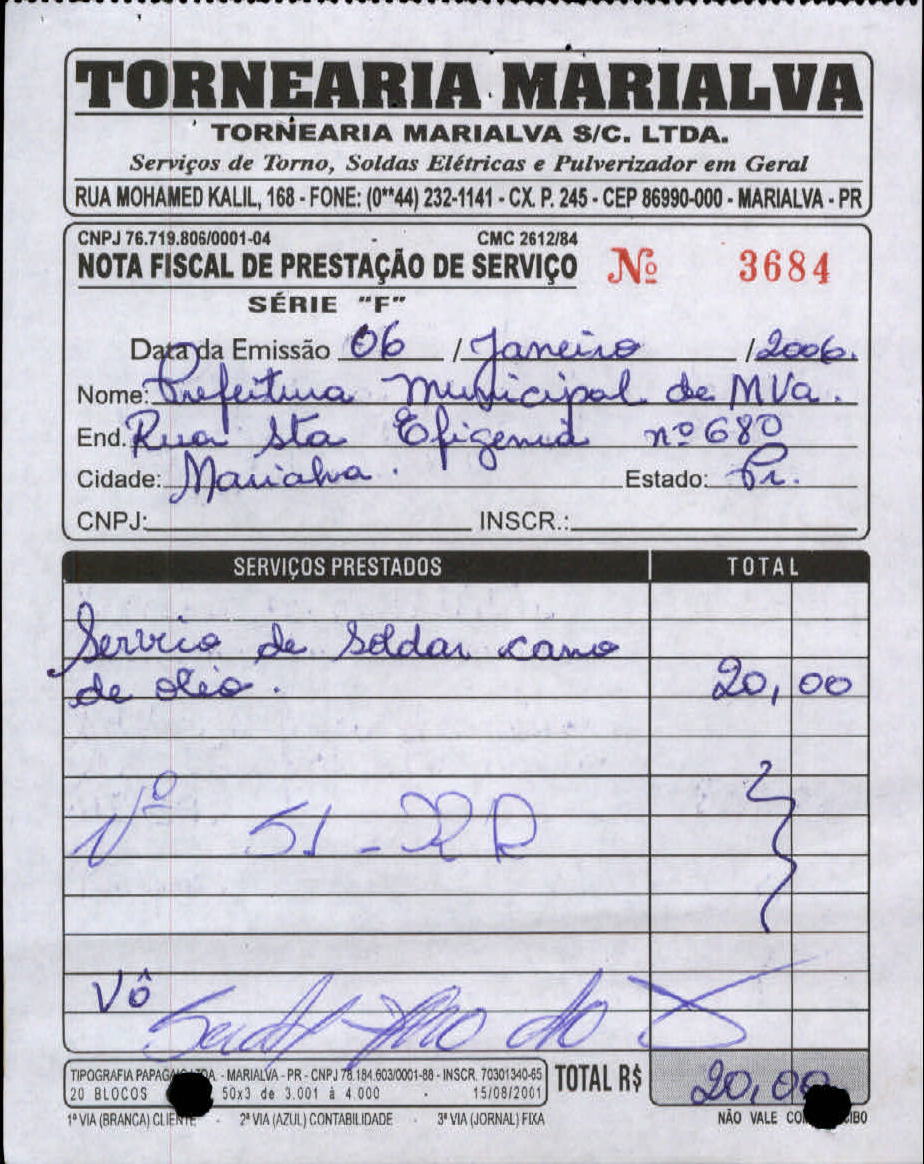 TORNEARIA MARIALVA
TORNEARIA MARIALVA S/C. LTDA.
Serviços de Torno, Soldas Elétricas e Pulverizador em Geral
RUA MOHAMED KALIL, 168 - FONE: (0**44) 232-1141 - CX. P. 245 - CEP 86990-000 - MARIALVA - PR
CNPJ 76.719.806/0001-04 CMC 2612/84
NOTA FISCAL DE PRESTAÇÃO DE SERVIÇO Nº 3684
SÉRIE "F"
Data da Emissão 06 / Janeiro / 2006.
Nome: Prefeitura Municipal de MVa.
End. Rua Sta Efigenia nº 680
Cidade: Marialva. Estado: Pr.
CNPJ: INSCR.:
SERVIÇOS PRESTADOS TOTAL
Servico de Soldar cano
de oleo. 20,00
Nº 51 - RR
Vô
TIPOGRAFIA - MARIALVA - PR - CNPJ 78.184.603/0001-88 - INSCR. 70301340-65
20 BLOCOS 50x3 de 3.001 à 4.000 - 15/08/2001
TOTAL R$ 20,00
1ª VIA (BRANCA) CLIENTE - 2ª VIA (AZUL) CONTABILIDADE - 3ª VIA (JORNAL) FIXA NÃO VALE